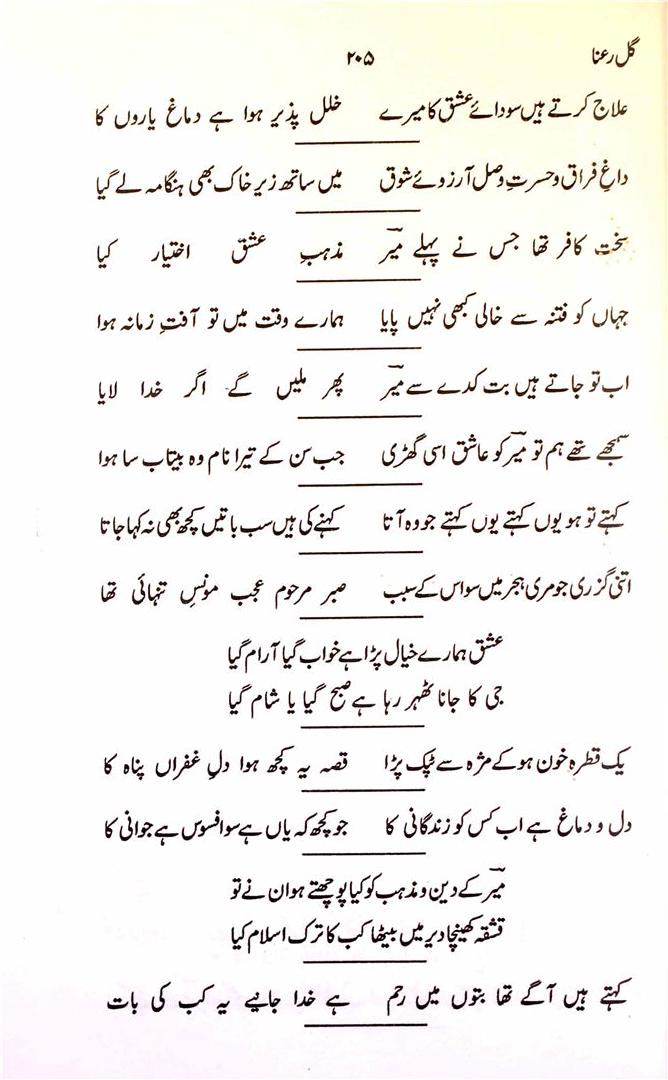 گل رعنا ۲۰۵
علاج کرتے ہیں سودائے عشق کا میرے خلل پذیر ہوا ہے دماغ یاروں کا
داغِ فراق و حسرتِ وصل آرزوئے شوق میں ساتھ زیرِ خاک بھی ہنگامہ لے گیا
سخت کافر تھا جس نے پہلے میرؔ مذہبِ عشق اختیار کیا
جہاں کو فتنہ سے خالی کبھی نہیں پایا ہمارے وقت میں تو آفتِ زمانہ ہوا
اب تو جاتے ہیں بت کدے سے میرؔ پھر ملیں گے اگر خدا لایا
سمجھے تھے ہم تو میرؔ کو عاشق اسی گھڑی جب سن کے تیرا نام وہ بیتاب سا ہوا
کہتے تو ہو یوں کہتے یوں کہتے جو وہ آتا کہنے کی ہیں سب باتیں کچھ بھی نہ کہا جاتا
اتنی گزری جو مری ہجر میں سو اس کے سبب صبر مرحوم عجب مونسِ تنہائی تھا
عشق ہمارے خیال پڑا ہے خواب گیا آرام گیا
جی کا جانا ٹھہر رہا ہے صبح گیا یا شام گیا
یک قطرہ خون ہو کے مژہ سے ٹپک پڑا قصہ یہ کچھ ہوا دلِ غفراں پناہ کا
دل و دماغ ہے اب کس کو زندگانی کا جو کچھ کہ یاں ہے سو افسوس ہے جوانی کا
میرؔ کے دین و مذہب کو کیا پوچھتے ہو ان نے تو
قشقہ کھینچا دیر میں بیٹھا کب کا ترک اسلام کیا
کہتے ہیں آگے تھا بتوں میں رحم ہے خدا جانیے یہ کب کی بات